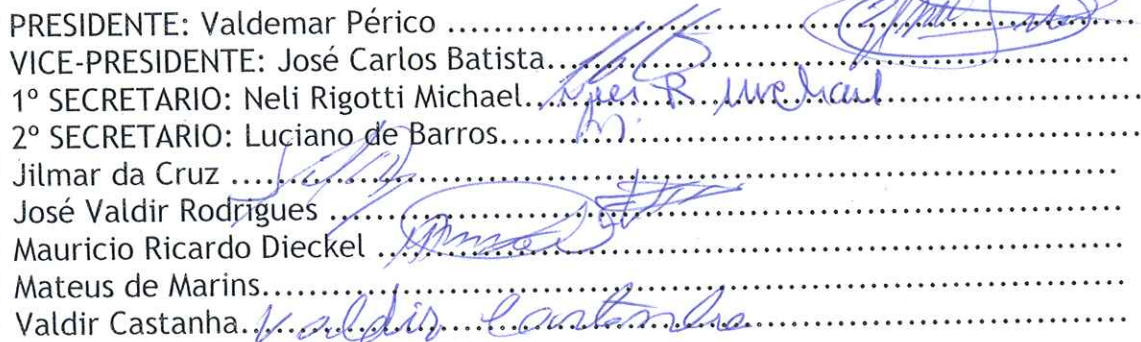 PRESIDENTE: Valdemar Périco ..................................................
VICE-PRESIDENTE: José Carlos Batista..................................................
1º SECRETARIO: Neli Rigotti Michael.......... Neli R Michael ..........
2º SECRETARIO: Luciano de Barros..................................................
Jilmar da Cruz ..................................................
José Valdir Rodrigues ..................................................
Mauricio Ricardo Dieckel ..................................................
Mateus de Marins..................................................
Valdir Castanha.......... Valdir Castanha ..........